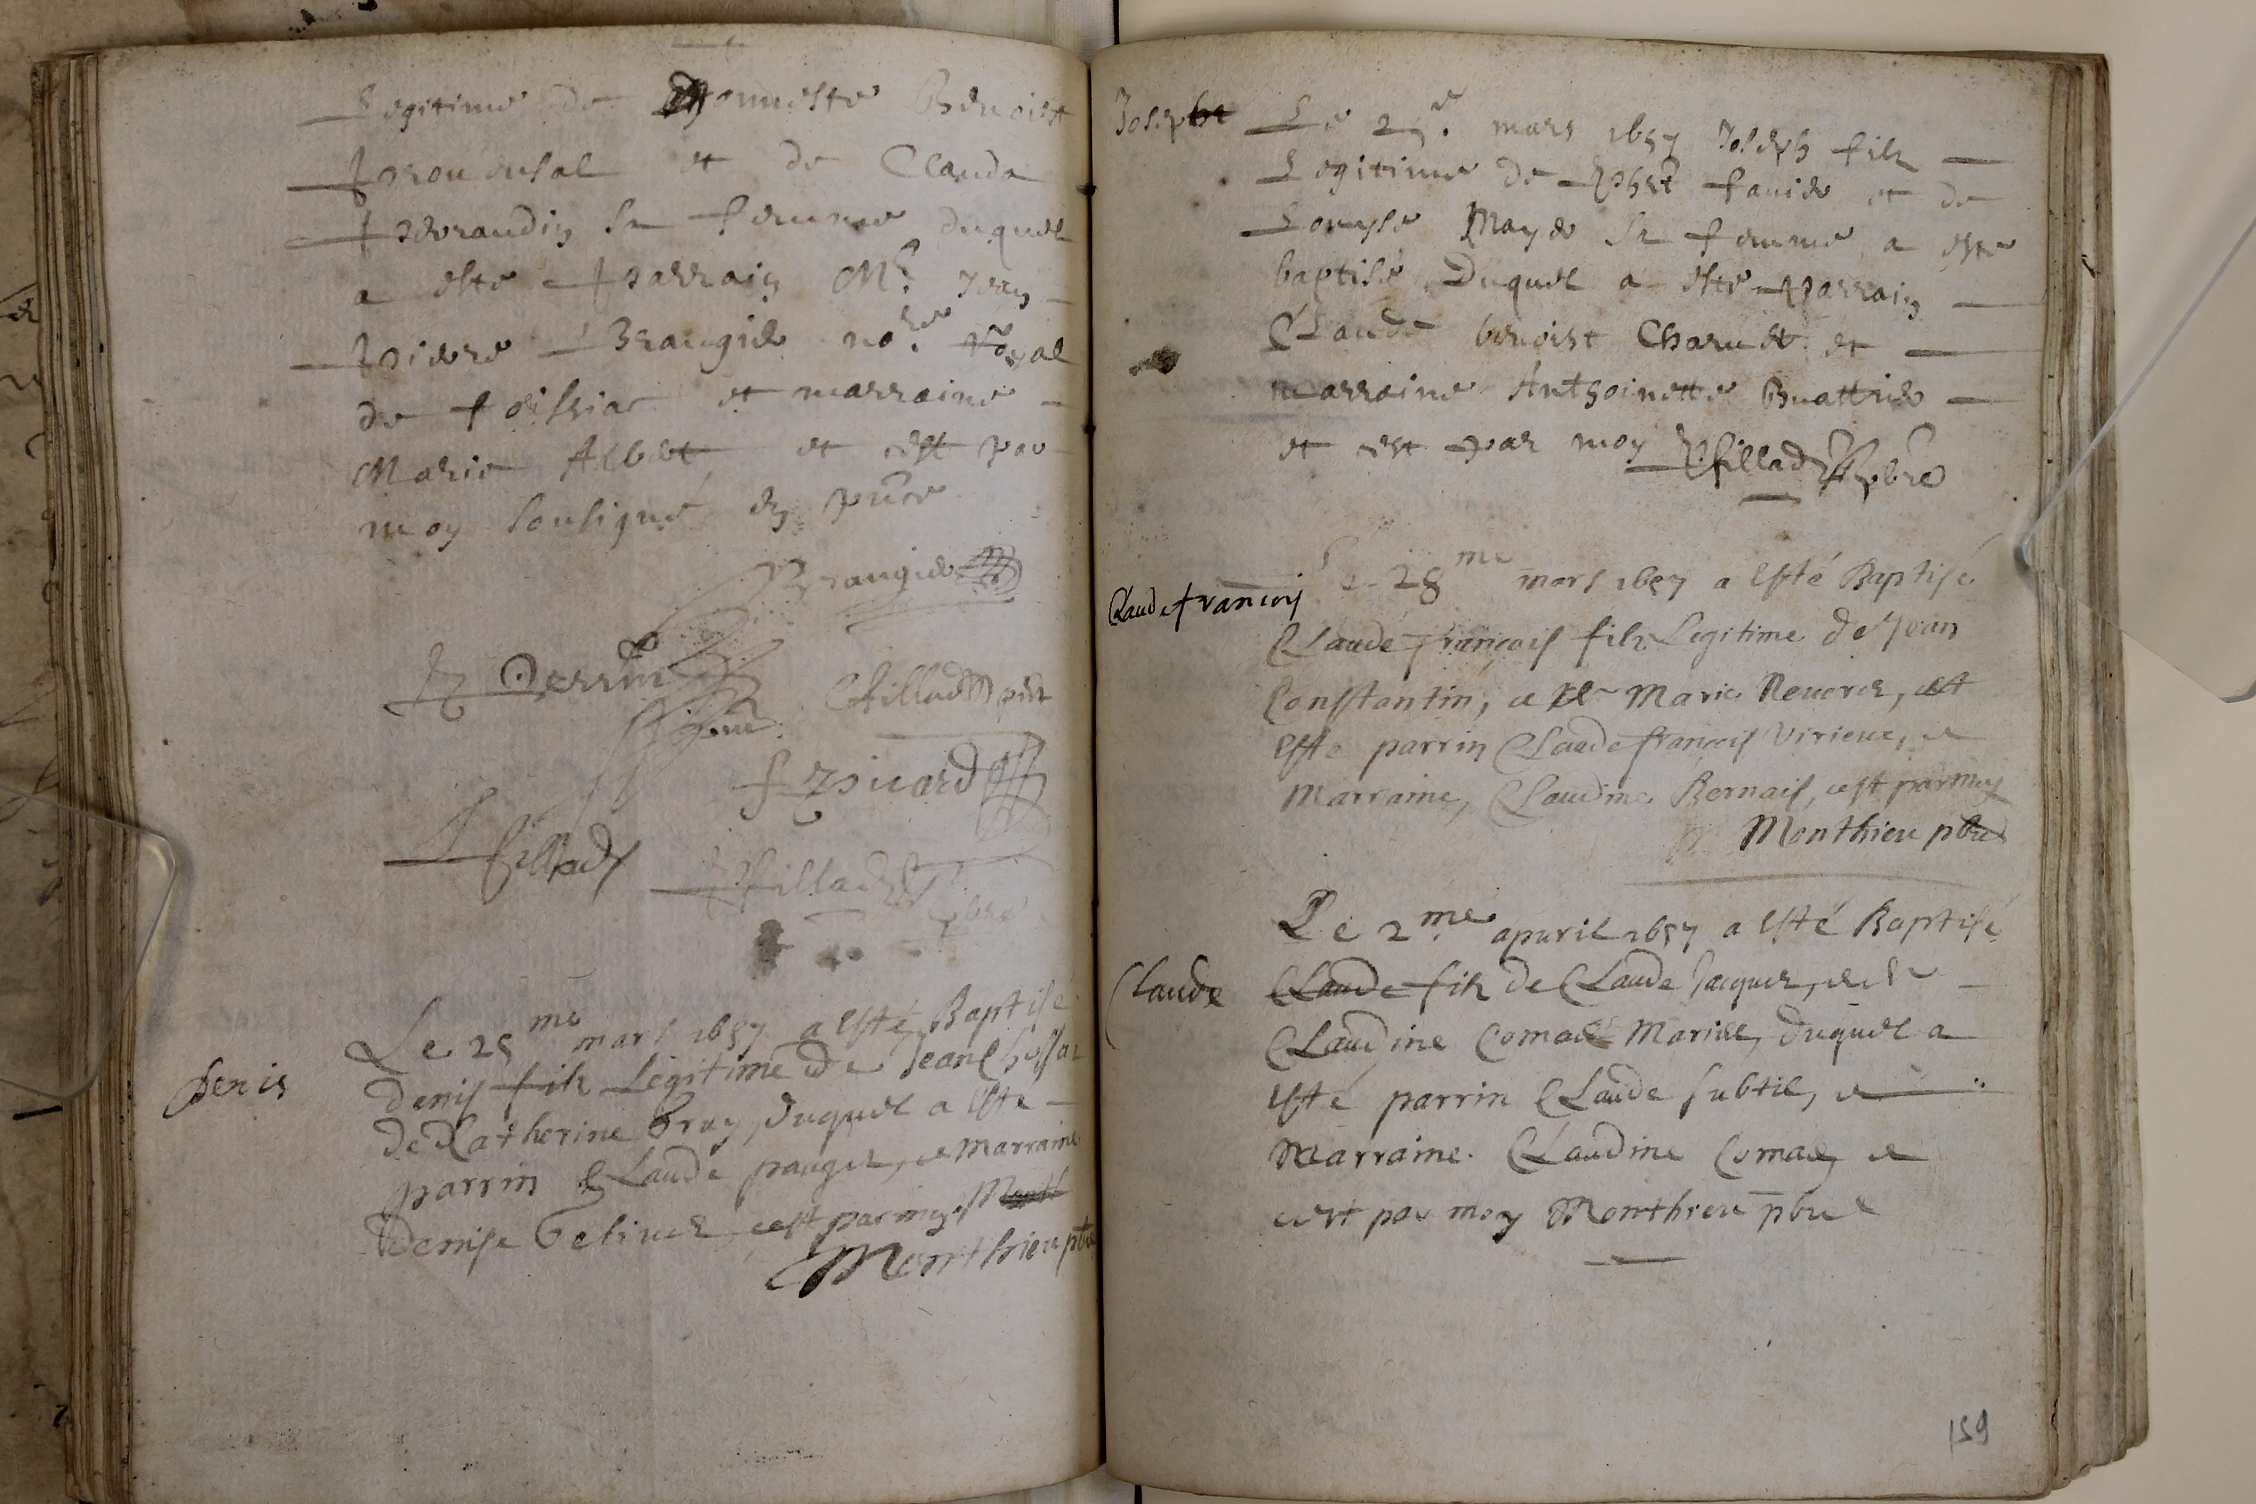 Legitime de honneste Benoist
Prouensal et de Clauda
Perraudin sa femme duquel
a esté parrain Mr Jean
Pierre Brangier nore Royal
de foissiac et marraine
Marie Albet et cest par
moy sousigné en pnce
Brangier
Perrin
Cfillade pbr
f Pivard
fillade
Pfillade pbre
Denis
Le 25me mars 1657 a esté Baptisé
denis filz Legitime de Jean
de Katherine Gruy, duquel a esté
parrin Claude pauget, et marraine
Denise Gelinet, cest par moy
Monthieu pbre
Joseph
Le 25e mars 1657 Joseph filz
Legitime de Phbt fauier et de
Louyse Mayet sa femme a esté
baptisé Duquel a esté parrain
Claude benoist Charnet et
marraine Anthoinette Buattier
et cest par moy Pfillade pbre
Claude francois
Le 28me mars 1657 a esté Baptisé
Claude françois filz Legitime de Jean
Constantin, et de Marie Reueret, et
esté parrin Claude francois Virieux, et
Marraine, Claudine Bernais, cest par moy
Monthieu pbre
Claude
Le 2me apuril 1657 a esté Baptisé
Claude filz de Claude Jacquet, et de
Claudine Comas Mariee, duquel a
esté parrin Claude subtil, et
Marraine Claudine Comas, et
cest par moy Monthieu pbre
159